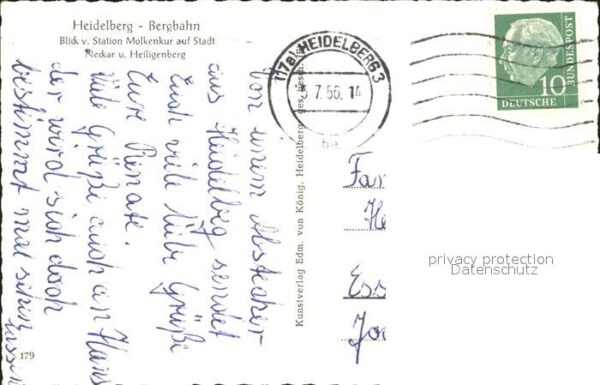 Heidelberg - Bergbahn
Blick v. Station Molkenkur auf Stadt
Neckar u. Heiligenberg
(17a) HEIDELBERG 3
5.7.56. 14
DEUTSCHE BUNDESPOST
10
Von einem Abstecher
aus Heidelbg sendet
Euch viele liebe Grüße
Eure Renate.
Viele Grüße auch an Hans
der wird sich doch
bestimmt mal sehen
lassen
Kunstverlag Edm. von König, Heidelberg
Fa
He
Ess
Jo
privacy protection
Datenschutz
179